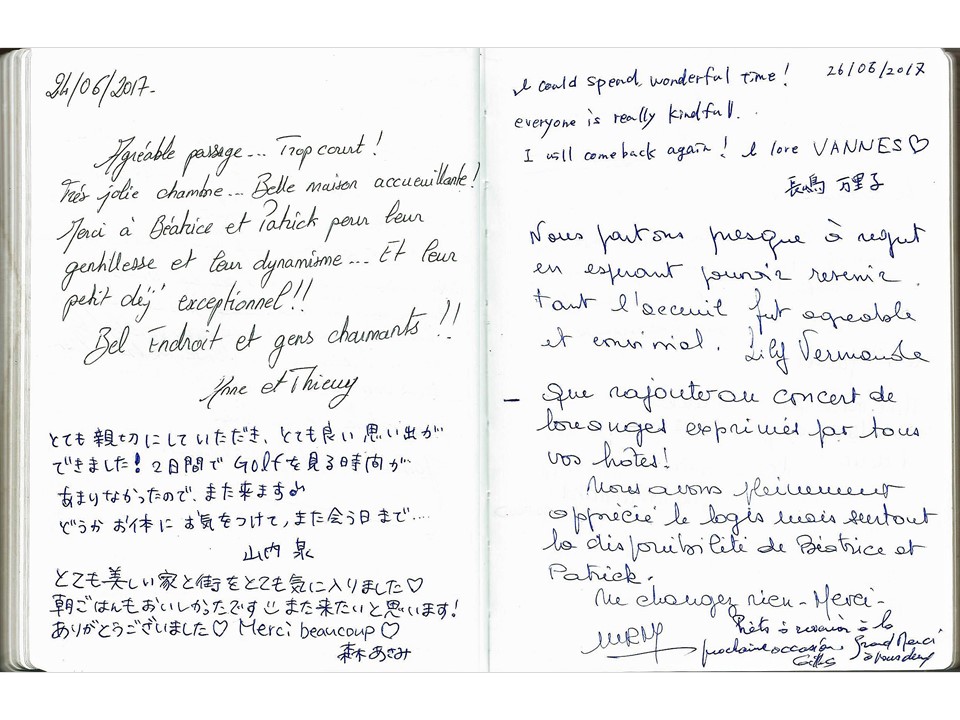 24/06/2017.
Agréable passage... Trop court !
Très jolie chambre... Belle maison accueuillante !
Merci à Béatrice et Patrick pour leur
gentillesse et leur dynamisme... Et leur
petit déj' exceptionnel !!
Bel Endroit et gens charmants !!
Anne et Thierry
とても親切にしていただき、とても良い思い出が
できました！2日間でGolfを見る時間が
あまりなかったので、また来ます♪
どうかお体にお気をつけて、また会う日まで....
山内 泉
とても美しい家と街をとても気に入りました♡
朝ごはんもおいしかったです また来たいと思います！
ありがとうございました♡ Merci beaucoup ♡
森木あさみ
26/06/2017
I could spend wonderful time !
everyone is really kindful.
I will comeback again ! I love VANNES♡
長嶋 万里子
Nous partons presque à regret
en espérant pouvoir revenir.
tant l'acceuil fut agréable
et convivial. Lily
- Que rajouter au concert de
louanges exprimés par tous
vos hôtes !
Nous avons pleinement
apprécié le logis mais surtout
la disponibilité de Béatrice et
Patrick.
Ne changez rien - Merci -
Prêts à revenir à la
prochaine occasion Grand Merci
Gilles à vous deux